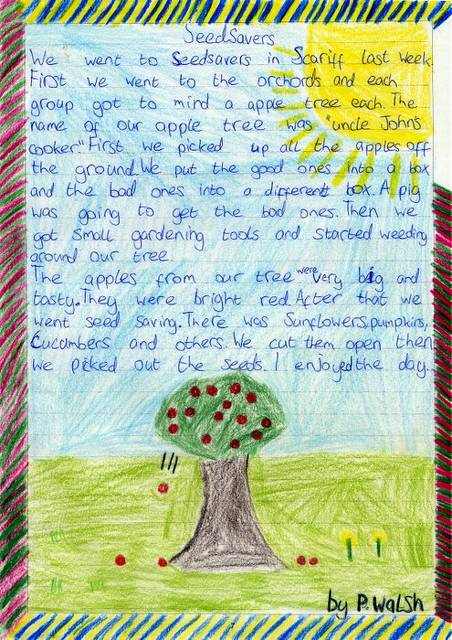 SeedSavers
We went to Seedsavers in Scariff last week
First we went to the orchords and each
group got to mind a apple tree each. The
name of our apple tree was "uncle John's
cooker." First we picked up all the apples off
the ground. We put the good ones into a box
and the bad ones into a different box. A pig
was going to get the bad ones. Then we
got small gardening tools and started weeding
around our tree.
The apples from our tree were very big and
tasty. They were bright red. After that we
went seed saving. There was Sunflowers, pumpkins,
Cucumbers and others. We cut them open then
we picked out the seeds. I enjoyed the day.
by P. Walsh